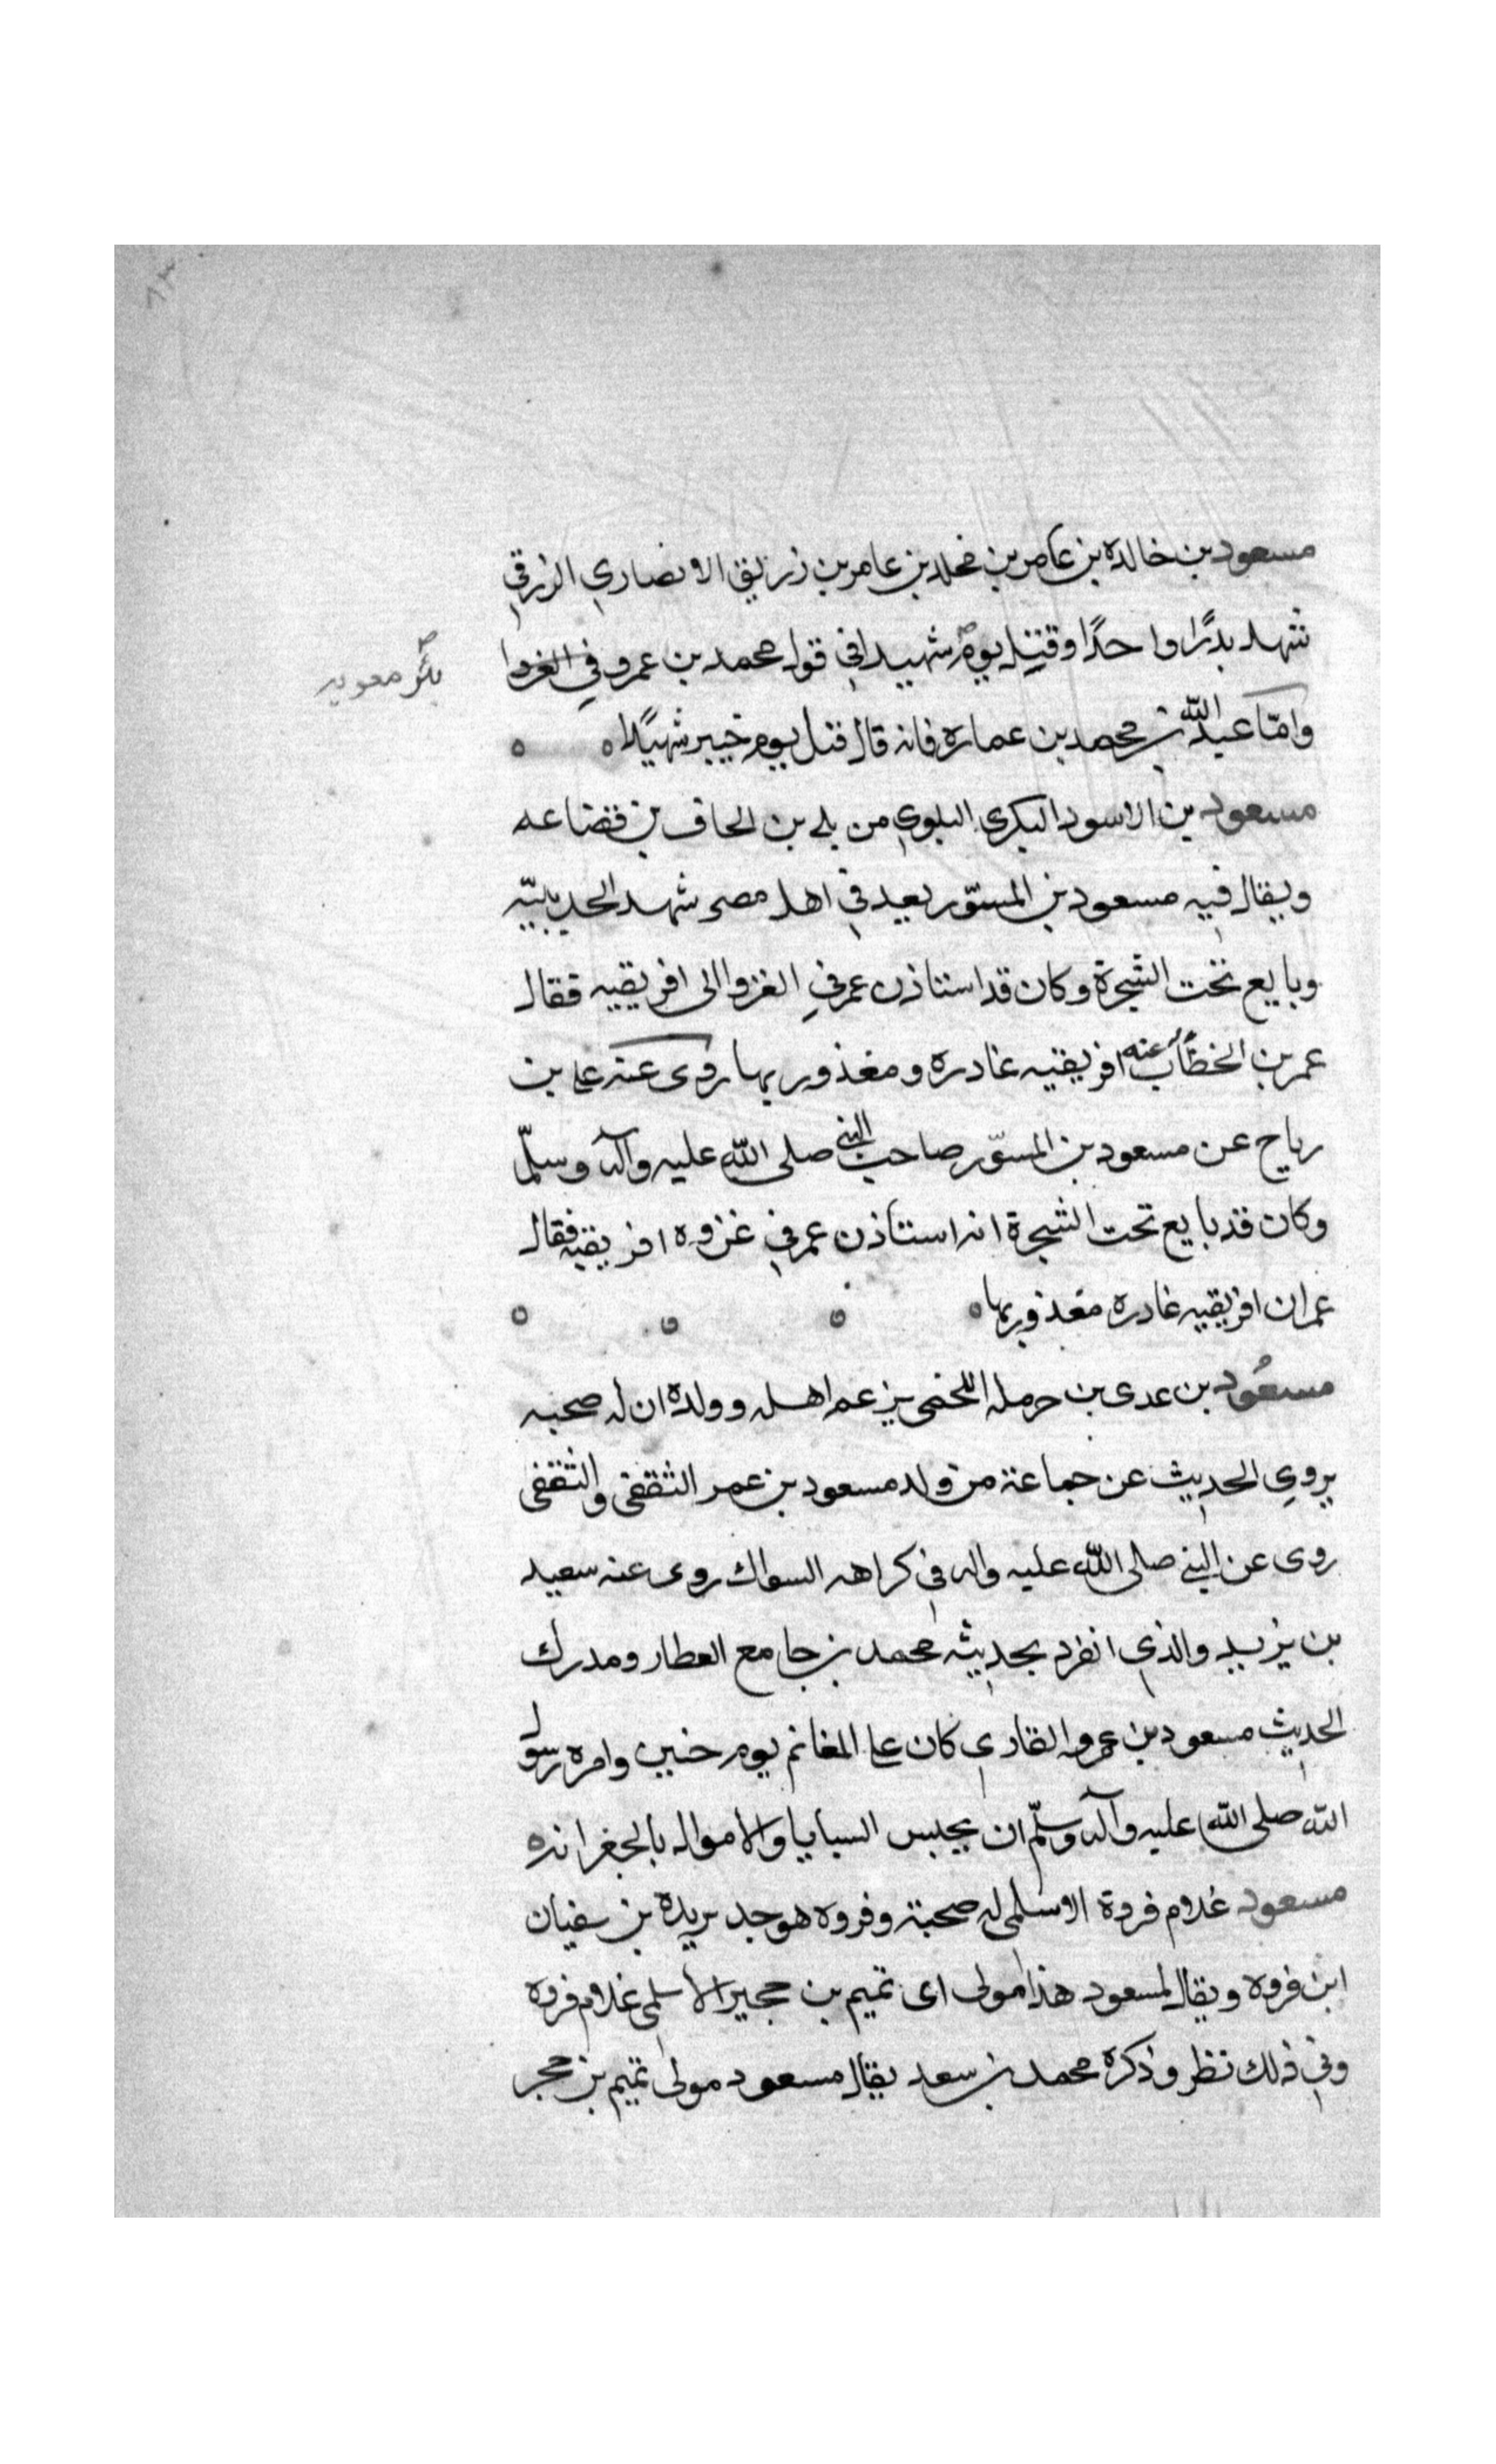 ٨٣
مسعود بن خالده بن عامر بن مخلد بن عامر بن زريق الانصاري الزرقي
شهد بدرًا واحدًا وقتل يوم شهيدا في قول محمد بن عمرو في الغزوا
بئر معويه
وامّا عبد الله بن محمد بن عماره فانه قال قتل يوم خيبر شهيدًا ه ه
مسعود بن الاسود البكرى البلوي من بلى بن الحاف بن قضاعه
ويقال فيه مسعود بن المسوّر يعد في اهل مصر شهد الحديبيّه
وبايع تحت الشجرة وكان قد استاذن عمر في الغزو الى افريقيه فقال
عمر بن الخطاب عنه افريقيه غادره ومغذور بها روى عنه على بن
رباح عن مسعود بن المسوّر صاحب النبى صلى الله عليه وآله وسلّم
وكان قد بايع تحت الشجرة انه استاذن عمر في غزوه افريقيه فقال
عمر ان افريقيه غادره مغذور بها ه ه ه ه
مسعُود بن عدى بن حرمله اللخمى يزعم اهله وولده ان له صحبه
يروي الحديث عن جماعة من ولد مسعود بن عمر الثقفى والثقفى
روى عن النبى صلى الله عليه واله في كراهه السواك روى عنه سعيد
بن يزيد والذي انفرد بحديثه محمد بن جامع العطار ومدرك
الحديث مسعود بن عمرو القاري كان على المغانم يوم حنين وامره رسول
الله صلى الله عليه وآله وسلّم ان يحبس السبايا والاموال بالجغرانه
مسعود غلام فروة الاسلمى له صحبة وفروه هو جد بريدة بن سفيان
ابن فروه ويقال لمسعود هذا مولى اى تميم بن حجير الاسلمى غلام فروه
وفي ذلك نظر وذكره محمد بن سعد يقال مسعود مولى تميم بن حجر